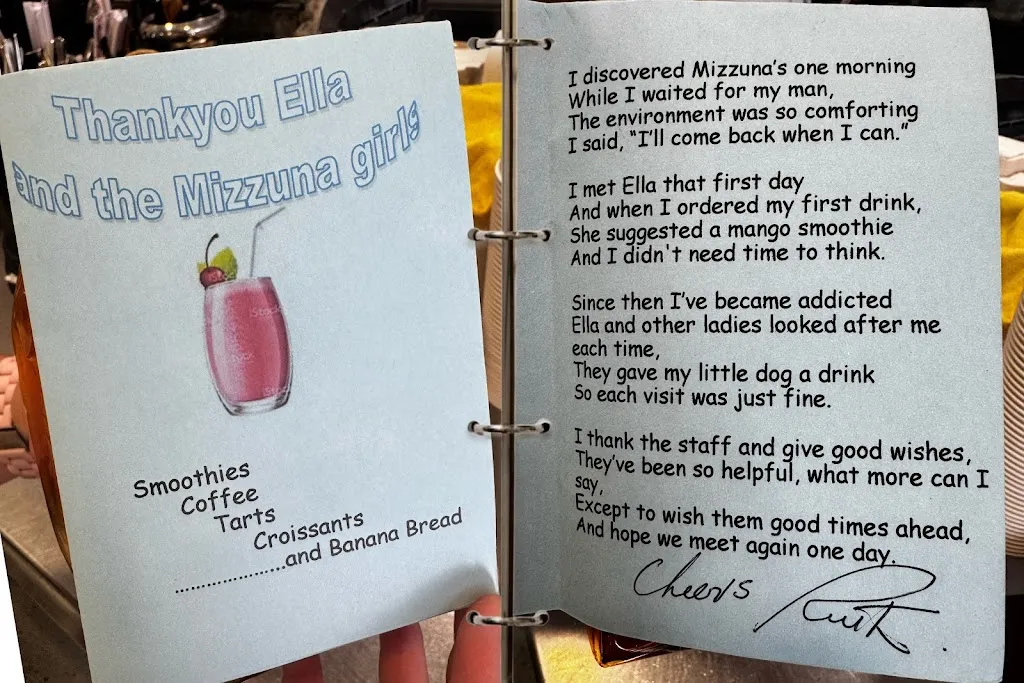 Thankyou Ella
and the Mizzuna girls
Smoothies
Coffee
Tarts
Croissants
....................and Banana Bread
I discovered Mizzuna's one morning
While I waited for my man,
The environment was so comforting
I said, “I'll come back when I can.”
I met Ella that first day
And when I ordered my first drink,
She suggested a mango smoothie
And I didn't need time to think.
Since then I've became addicted
Ella and other ladies looked after me
each time,
They gave my little dog a drink
So each visit was just fine.
I thank the staff and give good wishes,
They've been so helpful, what more can I
say,
Except to wish them good times ahead,
And hope we meet again one day.
Cheers Ruth.